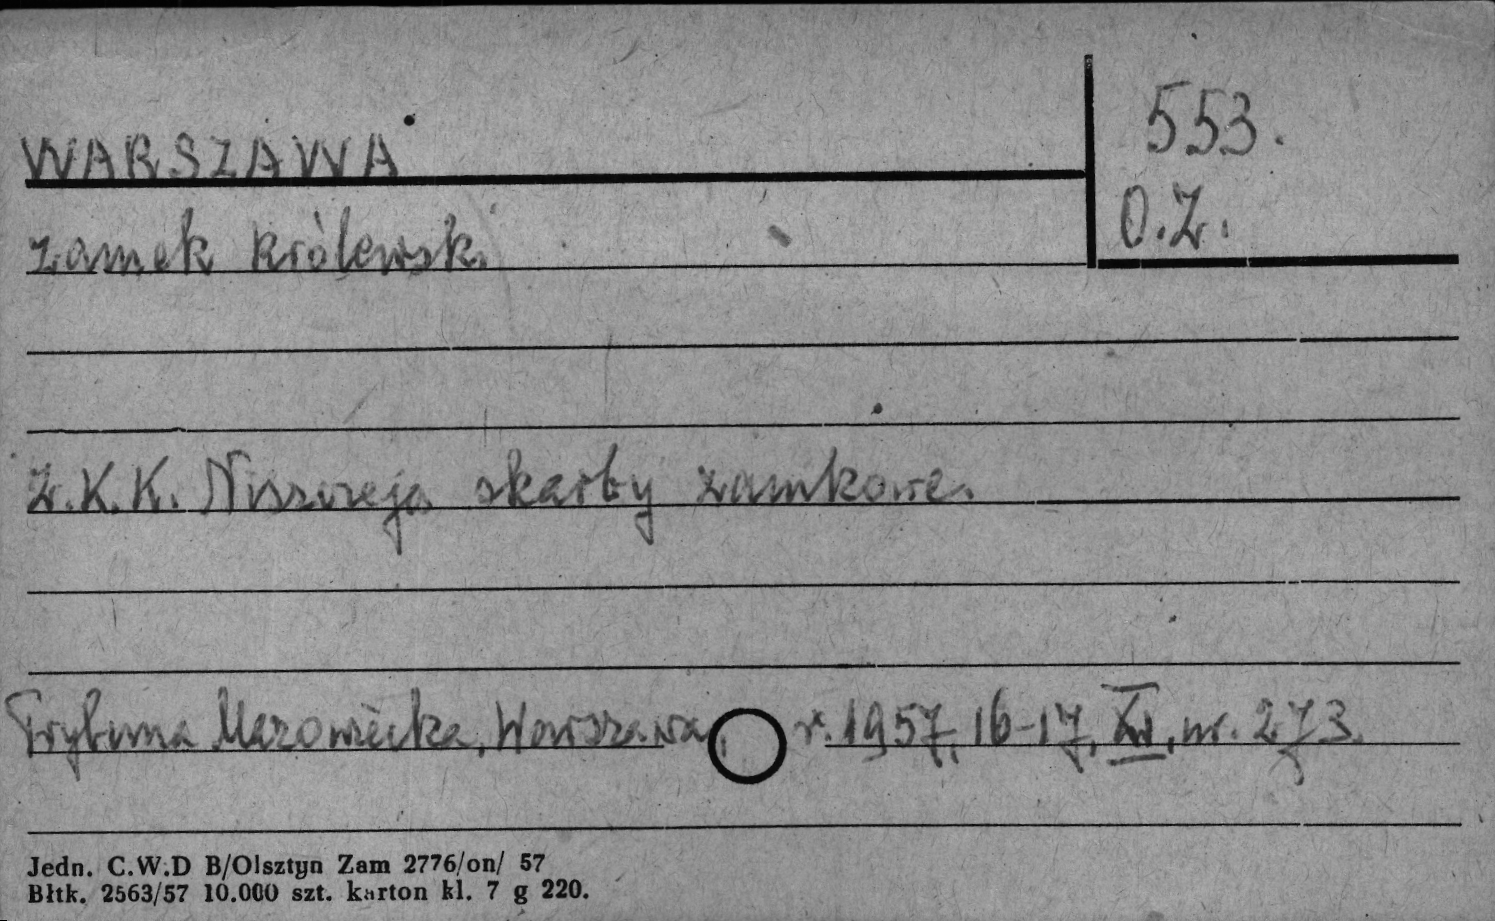 WARSZAWA
553.
O.Z.
zamek królewski
Z.K.K. Niszczeją skarby zamkowe.
Trybuna Mazowiecka, Warszawa, r. 1957, 16-17, XI, nr. 273.
Jedn. C.W.D B/Olsztyn Zam 2776/on/ 57
Błtk. 2563/57 10.000 szt. karton kl. 7 g 220.